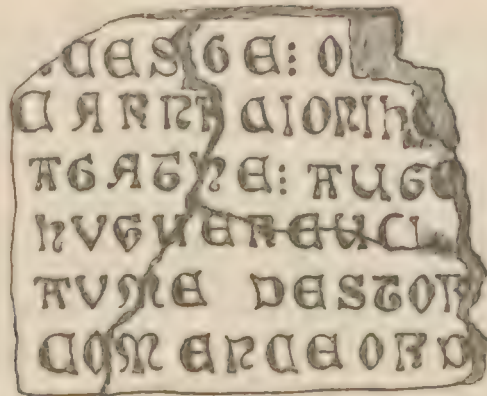 CES GE: O
CARNI CIONIh
AGATHE: AUGO
hVGUENEUCI
AVME DESTOR
COMENCEORD